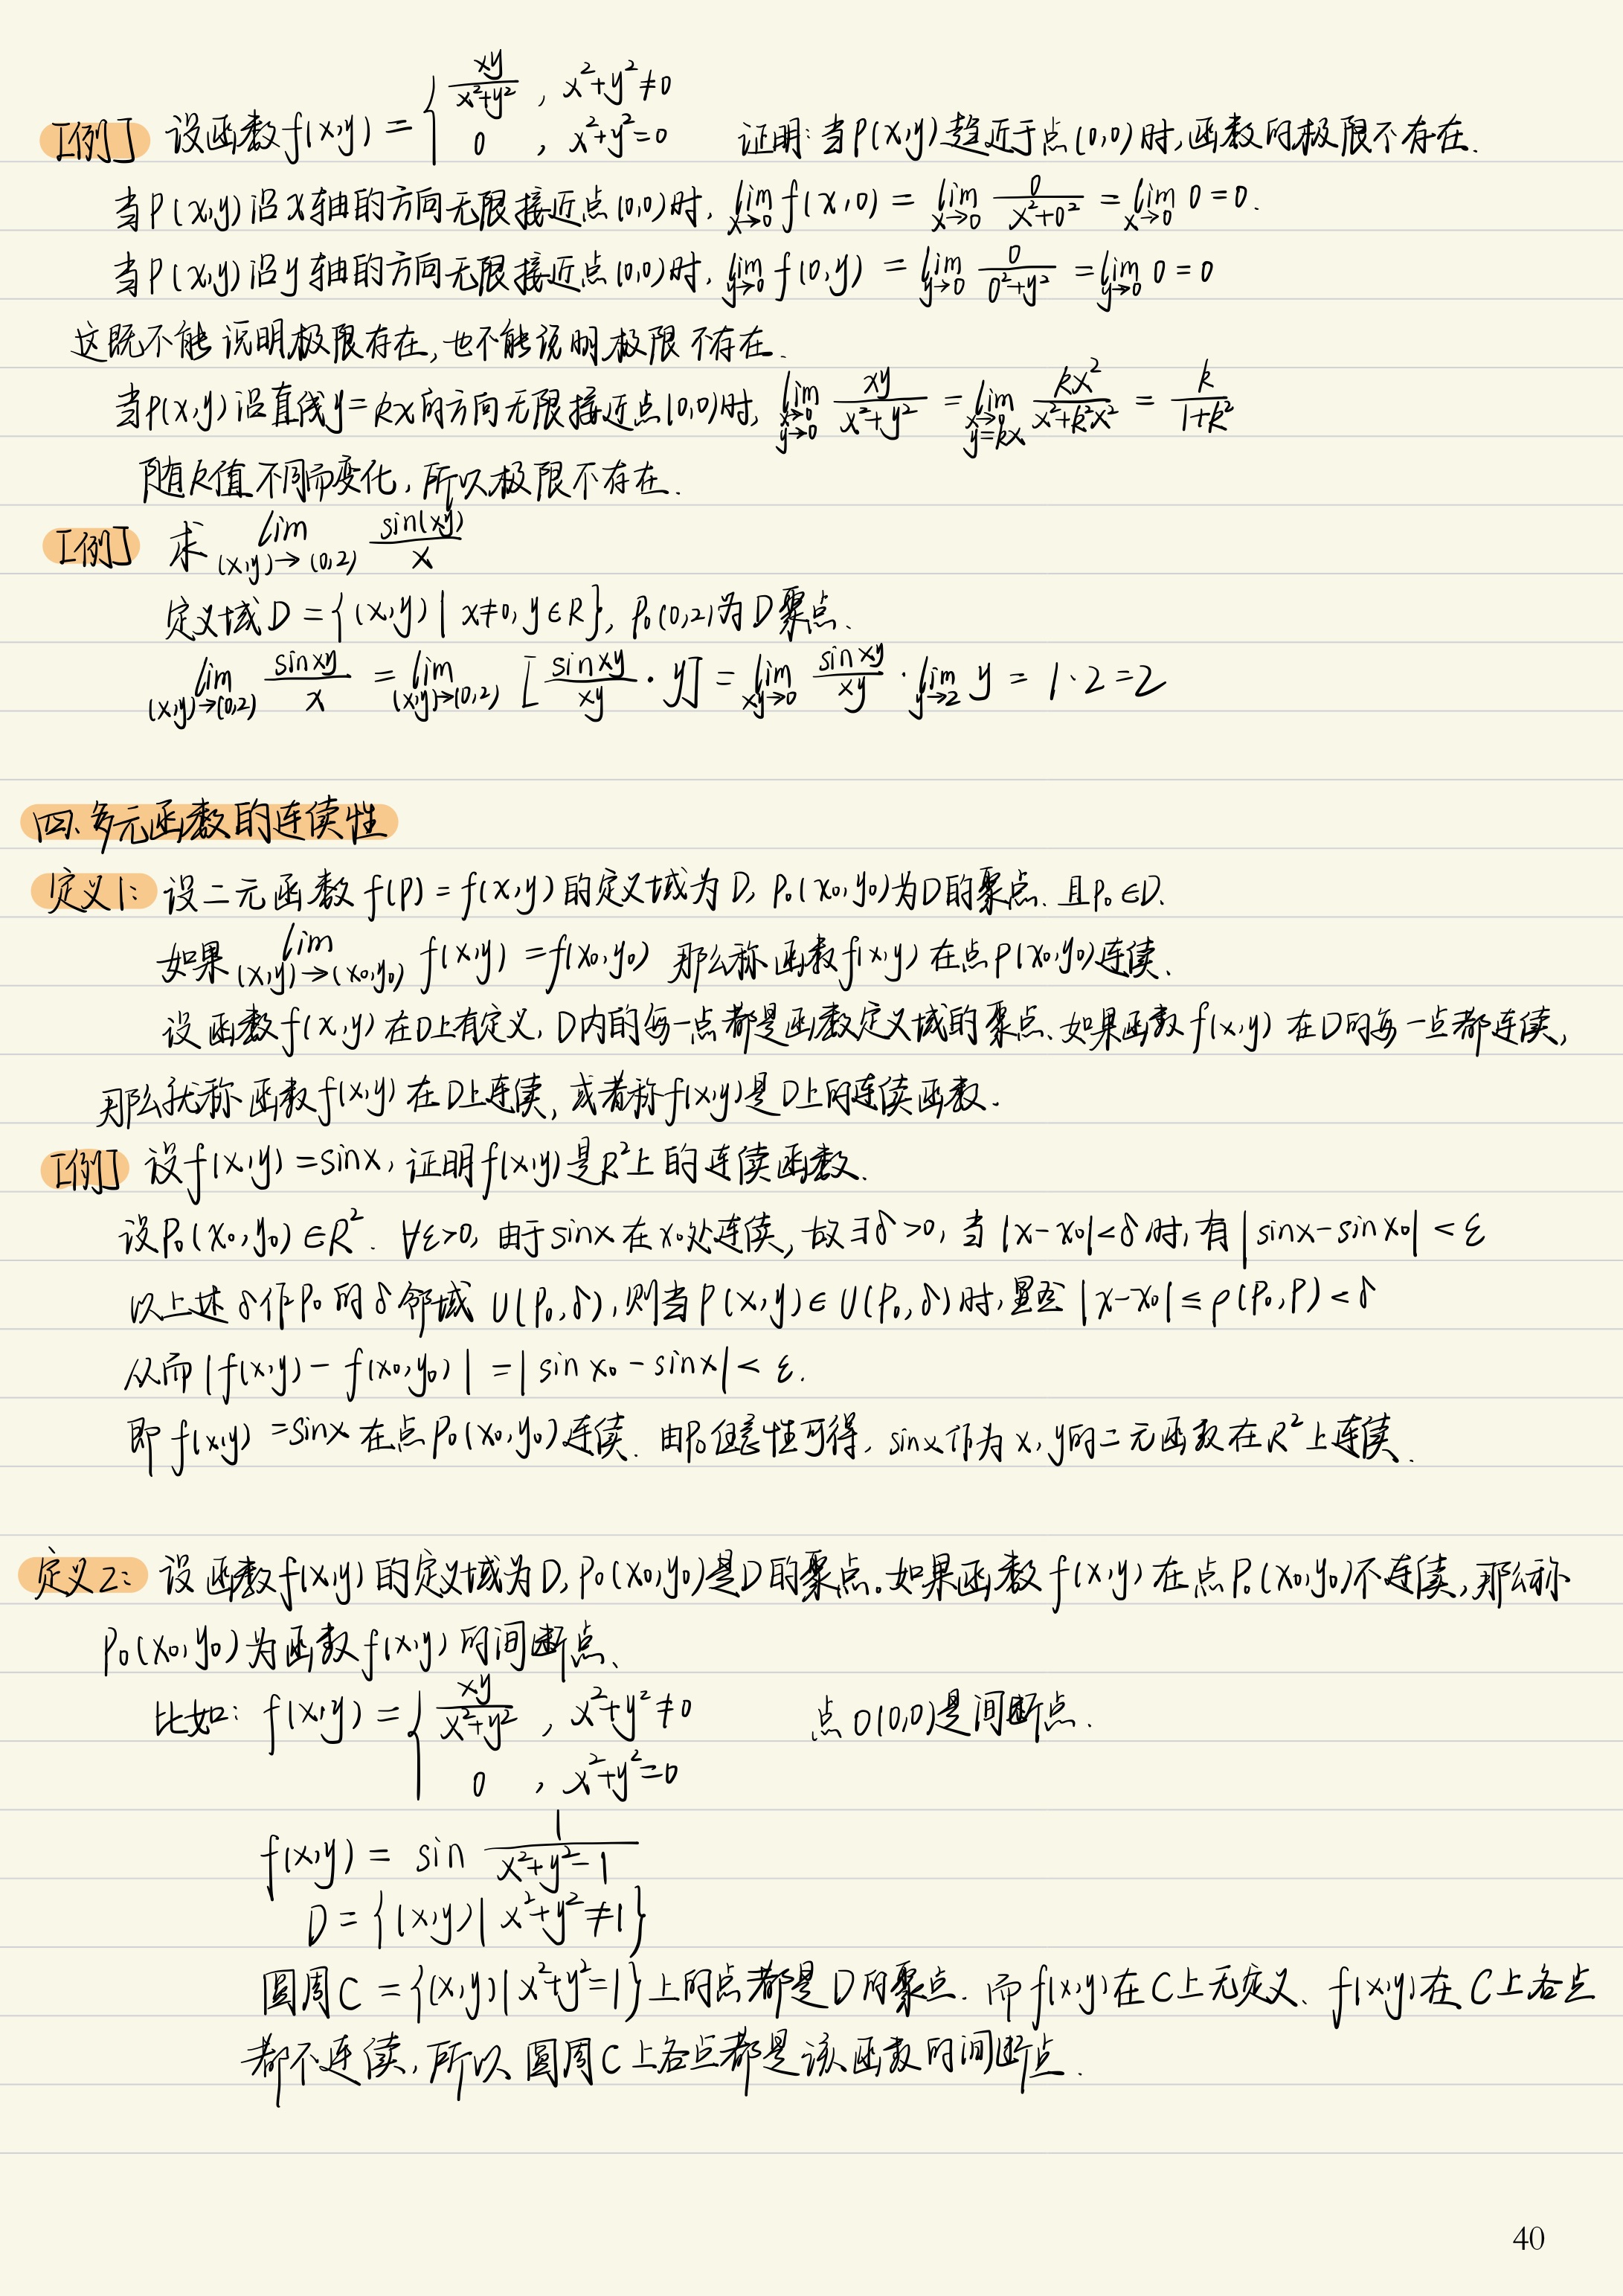 [例] 设函数f(x,y) = { xy/(x²+y²) , x²+y²≠0 ; 0 , x²+y²=0 证明:当P(x,y)趋近于点(0,0)时,函数的极限不存在.
当P(x,y)沿x轴的方向无限接近点(0,0)时, lim_{x→0} f(x,0) = lim_{x→0} 0/(x²+0²) = lim_{x→0} 0 = 0.
当P(x,y)沿y轴的方向无限接近点(0,0)时, lim_{y→0} f(0,y) = lim_{y→0} 0/(0²+y²) = lim_{y→0} 0 = 0
这既不能说明极限存在,也不能说明极限不存在.
当P(x,y)沿直线y=kx的方向无限接近点(0,0)时, lim_{x→0, y→0} xy/(x²+y²) = lim_{x→0, y=kx} kx²/(x²+k²x²) = k/(1+k²)
随k值不同而变化,所以极限不存在.
[例] 求 lim_{(x,y)→(0,2)} sin(xy)/x
定义域D={(x,y)| x≠0, y∈R}, P₀(0,2)为D聚点.
lim_{(x,y)→(0,2)} sinxy/x = lim_{(x,y)→(0,2)} [sinxy/xy · y] = lim_{xy→0} sinxy/xy · lim_{y→2} y = 1·2=2
四.多元函数的连续性
定义1: 设二元函数f(P)=f(x,y)的定义域为D, P₀(x₀,y₀)为D的聚点.且P₀∈D.
如果 lim_{(x,y)→(x₀,y₀)} f(x,y) =f(x₀,y₀) 那么称函数f(x,y)在点P(x₀,y₀)连续.
设函数f(x,y)在D上有定义, D内的每一点都是函数定义域的聚点.如果函数f(x,y)在D的每一点都连续,
那么就称函数f(x,y)在D上连续,或者称f(x,y)是D上的连续函数.
[例] 设f(x,y)=sinx,证明f(x,y)是R²上的连续函数.
设P₀(x₀,y₀)∈R². ∀ε>0, 由于sinx在x₀处连续,故∃δ>0,当 |x-x₀|<δ时,有|sinx-sinx₀|<ε
以上述δ作P₀的δ邻域 U(P₀,δ),则当P(x,y)∈U(P₀,δ)时,显然 |x-x₀|≤ρ(P₀,P)<δ
从而|f(x,y)-f(x₀,y₀)| =|sinx₀-sinx|<ε.
即f(x,y)=sinx在点P₀(x₀,y₀)连续.由P₀任意性可得,sinx作为x,y的二元函数在R²上连续.
定义2: 设函数f(x,y)的定义域为D,P₀(x₀,y₀)是D的聚点。如果函数f(x,y)在点P₀(x₀,y₀)不连续,那么称
P₀(x₀,y₀)为函数f(x,y)的间断点.
比如: f(x,y) = { xy/(x²+y²) , x²+y²≠0 ; 0 , x²+y²=0 点O(0,0)是间断点.
f(x,y) = sin 1/(x²+y²-1)
D={(x,y)| x²+y²≠1}
圆周C={(x,y)|x²+y²=1}上的点都是D的聚点.而f(x,y)在C上无定义. f(x,y)在C上各点
都不连续,所以圆周C上各点都是该函数的间断点.
40